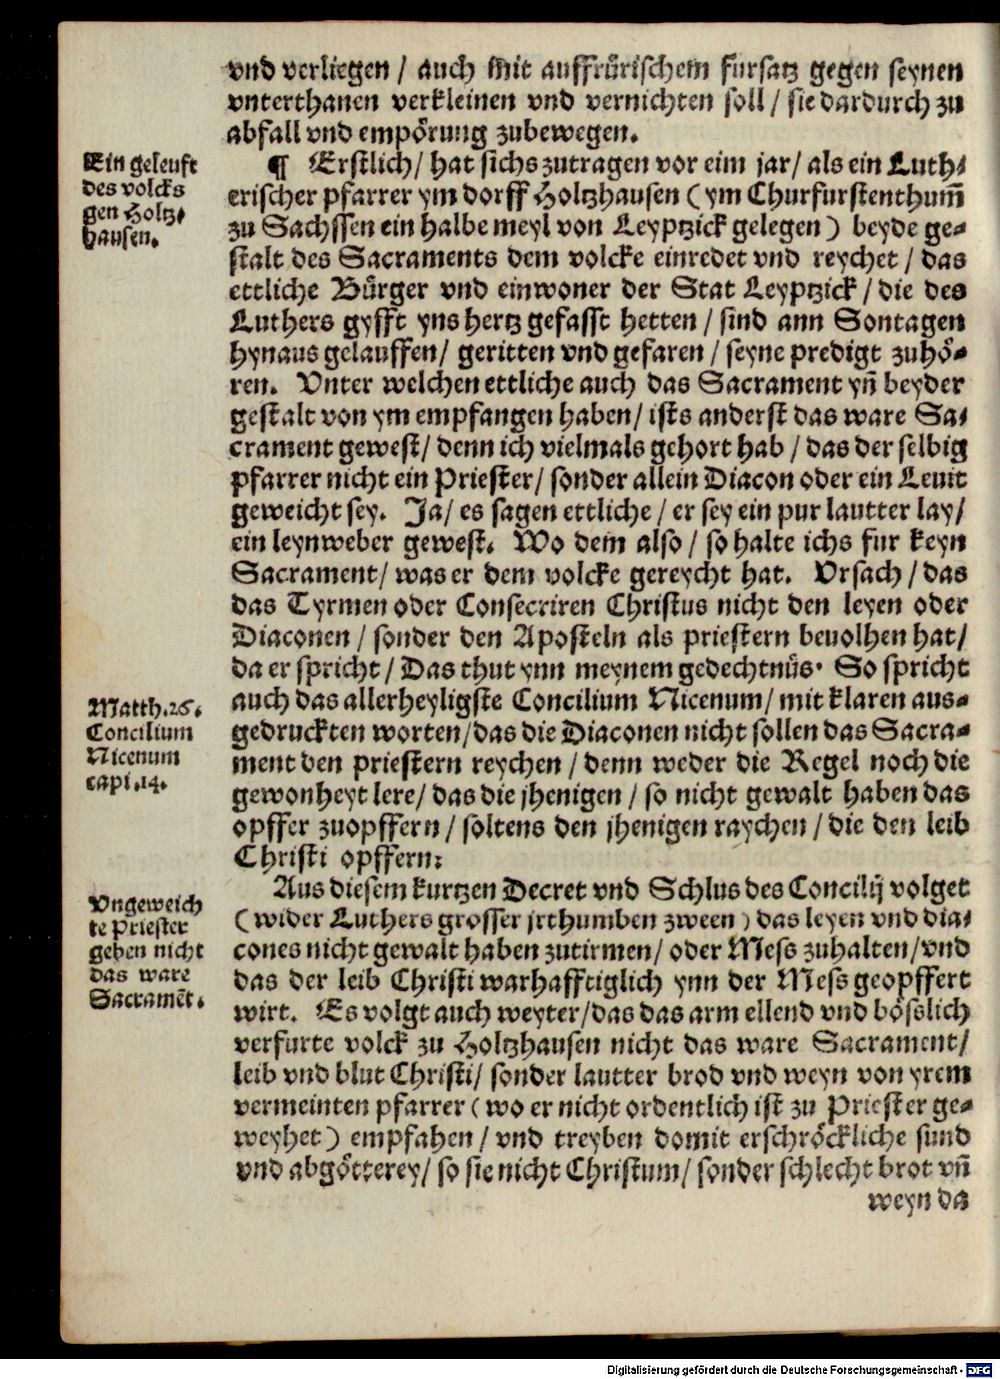 vnd verliegen / auch mit auffrürischem fursatz gegen seynen
vnterthanen verkleinen vnd vernichten soll / sie dardurch zu
abfall vnd empörung zubewegen.
Ein geleufft
des volcks
gen Holtz⸗
hausen.
¶ Erstlich / hat sichs zutragen vor eim jar / als ein Luth⸗
erischer pfarrer ym dorff Holtzhausen ( ym Churfurstenthum̄
zu Sachssen ein halbe meyl von Leyptzick gelegen ) beyde ge⸗
stalt des Sacraments dem volcke einredet vnd reychet / das
ettliche Bürger vnd einwoner der Stat Leyptzick / die des
Luthers gyfft yns hertz gefasst hetten / sind ann Sontagen
hynaus gelauffen / geritten vnd gefaren / seyne predigt zuhö⸗
ren. Vnter welchen ettliche auch das Sacrament yn̄ beyder
gestalt von ym empfangen haben / ists anderst das ware Sa⸗
crament gewest / denn ich vielmals gehort hab / das der selbig
pfarrer nicht ein Priester / sonder allein Diacon oder ein Leuit
geweicht sey. Ja / es sagen ettliche / er sey ein pur lautter lay /
ein leynweber gewest. Wo dem also / so halte ichs fur keyn
Sacrament / was er dem volcke gereycht hat. Vrsach / das
das Tyrmen oder Consecriren Christus nicht den leyen oder
Diaconen / sonder den Aposteln als priestern beuolhen hat /
da er spricht / Das thut ynn meynem gedechtnüs. So spricht
Matth.26.
Concilium
Nicenum
capi.14.
auch das allerheyligste Concilium Nicenum / mit klaren aus⸗
gedruckten worten / das die Diaconen nicht sollen das Sacra⸗
ment den priestern reychen / denn weder die Regel noch die
gewonheyt lere / das die jhenigen / so nicht gewalt haben das
opffer zuopffern / soltens den jhenigen raychen / die den leib
Christi opffern:
Vngeweich
te Priester
geben nicht
das ware
Sacramēt.
Aus diesem kurtzen Decret vnd Schlus des Concilij volget
( wider Luthers grosser jrthumben zween ) das leyen vnd dia⸗
cones nicht gewalt haben zutirmen / oder Mess zuhalten / vnd
das der leib Christi warhafftiglich ynn der Mess geopffert
wirt. Es volgt auch weyter / das das arm ellend vnd bösslich
verfurte volck zu Holtzhausen nicht das ware Sacrament /
leib vnd blut Christi / sonder lautter brod vnd weyn von yrem
vermeinten pfarrer ( wo er nicht ordentlich ist zu Priester ge⸗
weyhet ) empfahen / vnd treyben domit erschröckliche sund
vnd abgötterey / so sie nicht Christum / sonder schlecht brot vn̄
weyn da
Digitalisierung gefördert durch die Deutsche Forschungsgemeinschaft - DFG